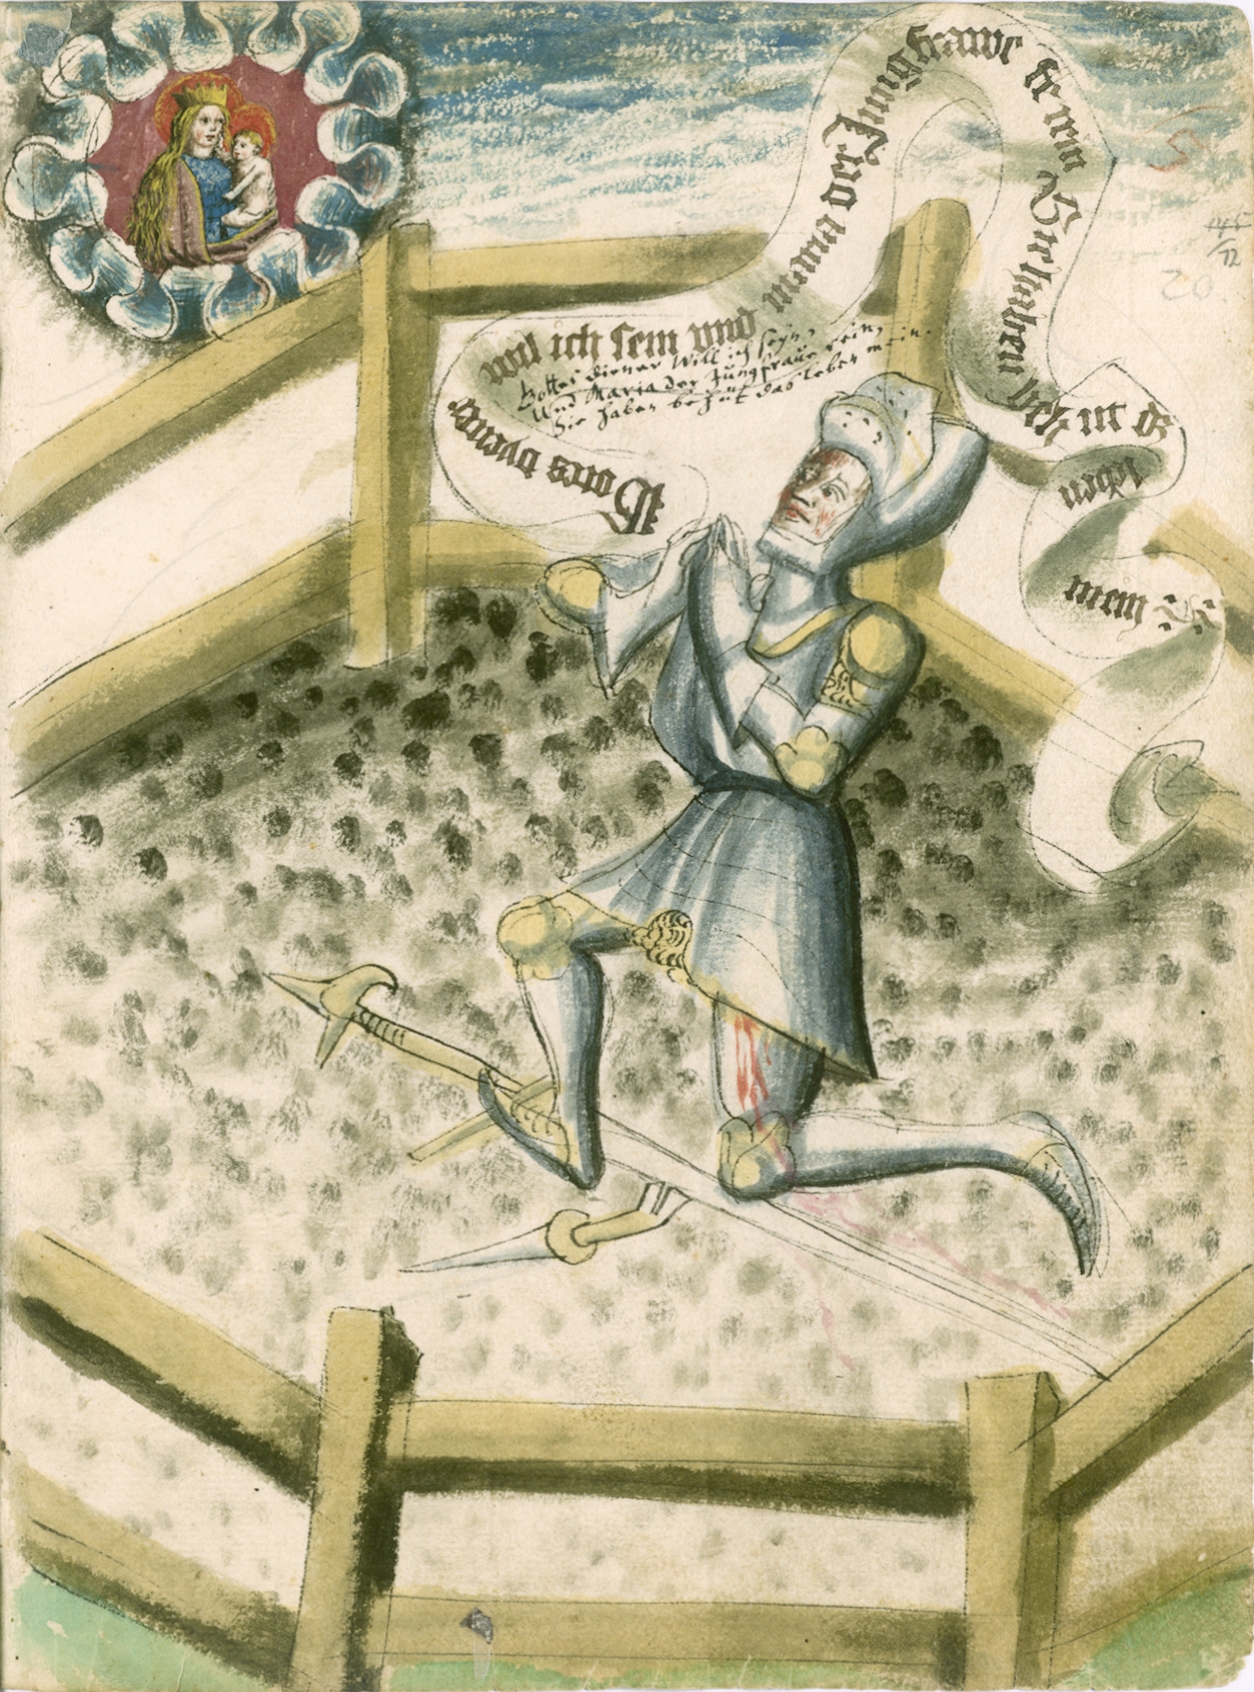 Gotes dyener
wil ich sein vnd maria der Jungfrawe
rein Sie haben
leben
mein
Gottes diener Will ich seyn,
Und Maria der Jungfraue rein,
Sie haben behüt das leben mein.
5
12
20.